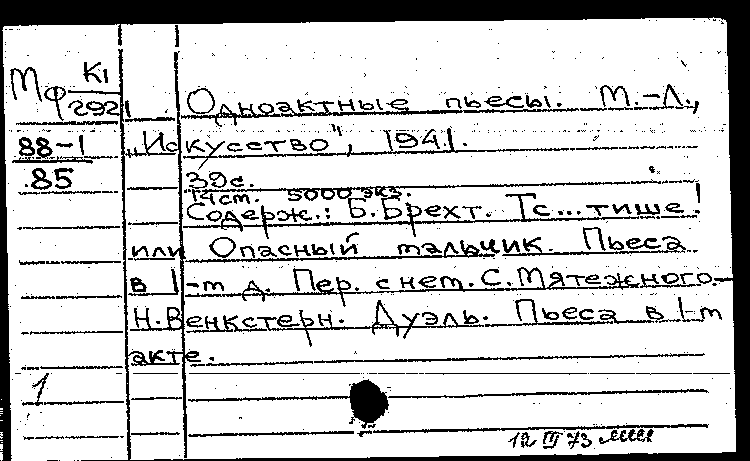 Мф К1
2921
88-1
85
Одноактные пьесы. М.-Л.,
„Искусство", 1941.
39с.
14см. 5000 экз.
Содерж.: Б.Брехт. Тс...тише!
или Опасный мальчик. Пьеса
в 1-м д. Пер. с нем. С.Мятежного.—
Н.Венкстерн. Дуэль. Пьеса в 1-м
акте.
1
12 III 73